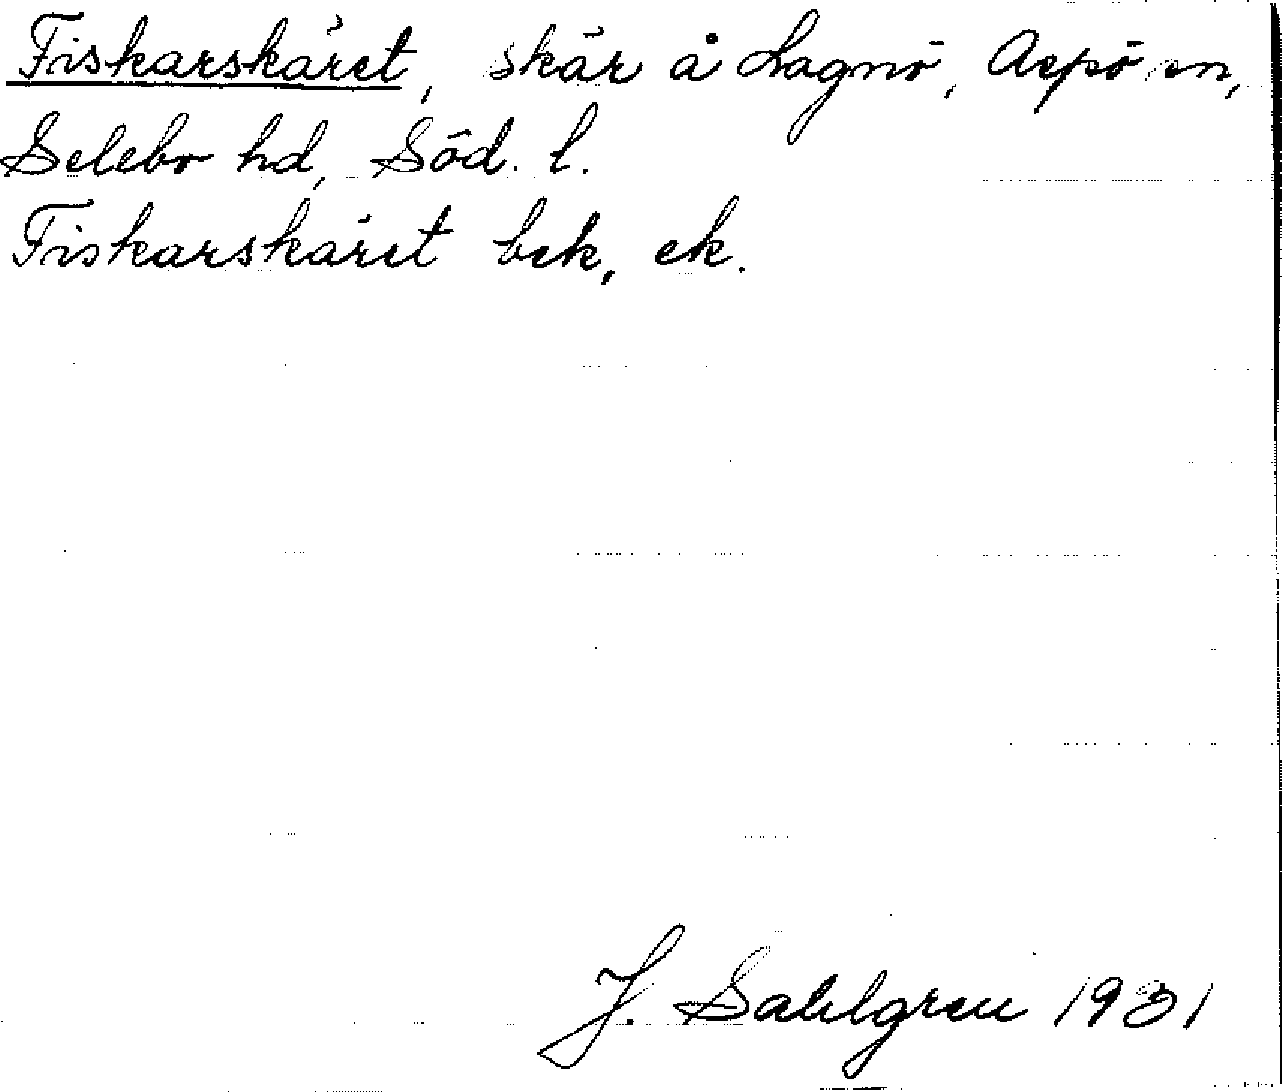 Fiskarskäret, skär å Lagnö, Aspö sn,
Selebo hd, Söd. l.
Fiskarskäret bek, ek.
J. Sahlgren 1931